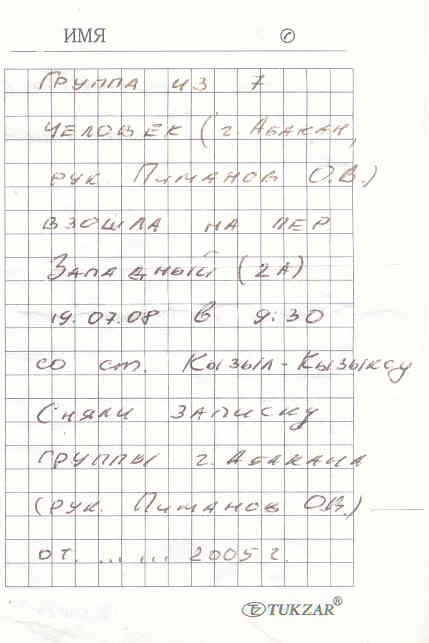 ИМЯ ✆
ГРУППА ИЗ 7
ЧЕЛОВЕК (г. АБАКАН,
РУК ПИМАНОВ О.В.)
ВЗОШЛА НА ПЕР
ЗАПАДНЫЙ (2А)
19.07.08 В 9:30
СО СТ. КЫЗЫЛ-КЫЗЫКСУ
СНЯЛИ ЗАПИСКУ
ГРУППЫ г. АБАКАНА
(РУК. ПИМАНОВ О.В.)
ОТ. ... ... 2005 г.
TUKZAR®